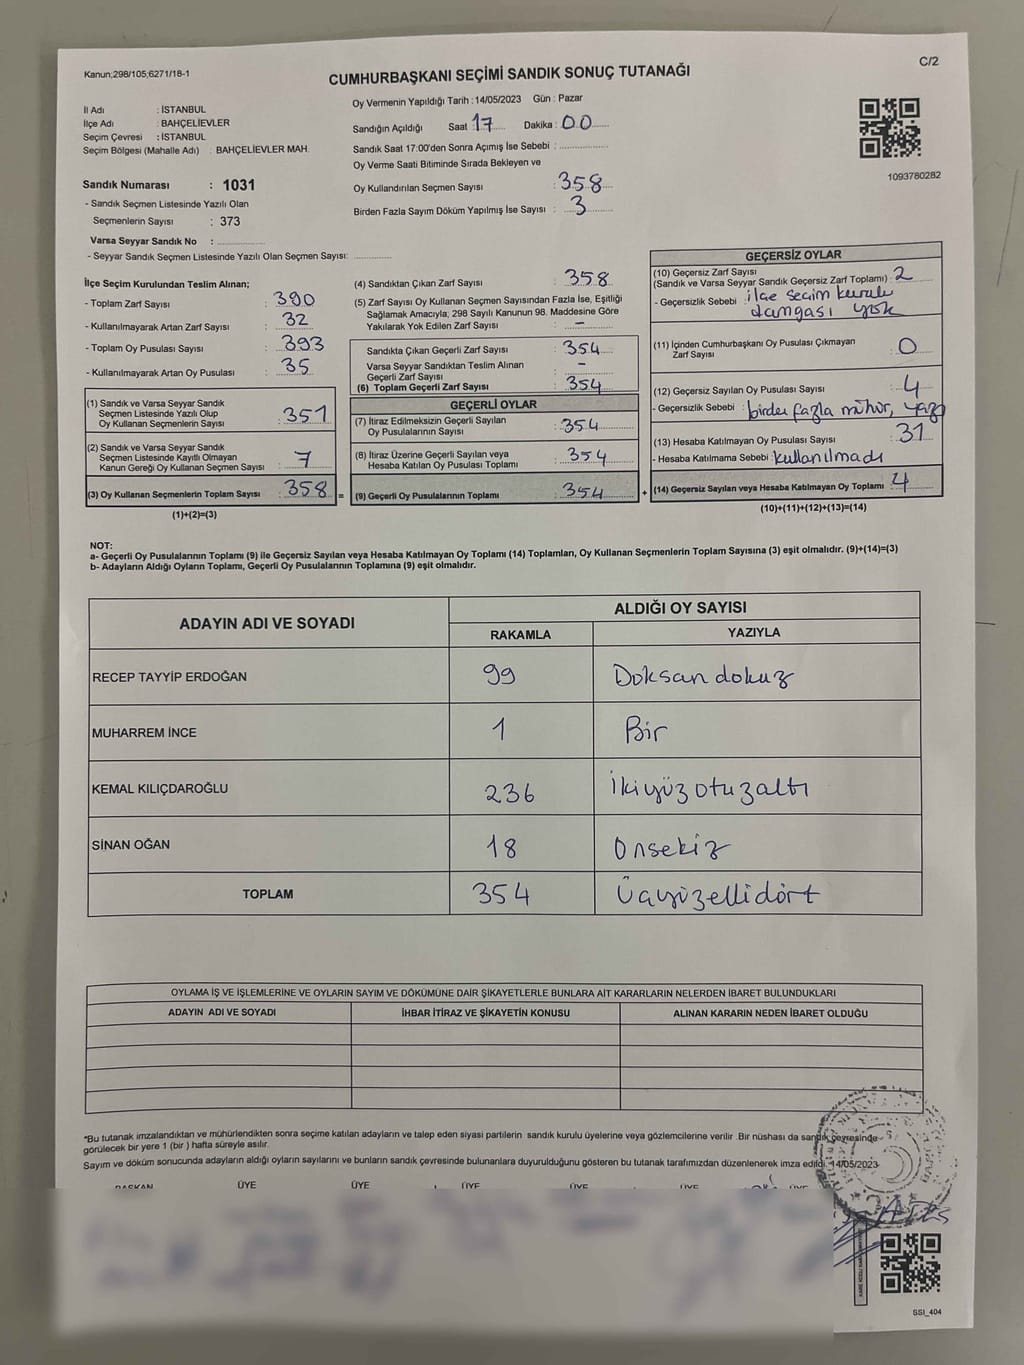 Kanun;298/105;6271/18-1
C/2
CUMHURBAŞKANI SEÇİMİ SANDIK SONUÇ TUTANAĞI
İl Adı : İSTANBUL
İlçe Adı : BAHÇELİEVLER
Seçim Çevresi : İSTANBUL
Seçim Bölgesi (Mahalle Adı) : BAHÇELİEVLER MAH.
Sandık Numarası : 1031
- Sandık Seçmen Listesinde Yazılı Olan
Seçmenlerin Sayısı : 373
Varsa Seyyar Sandık No :
- Seyyar Sandık Seçmen Listesinde Yazılı Olan Seçmen Sayısı:
Oy Vermenin Yapıldığı Tarih : 14/05/2023 Gün : Pazar
Sandığın Açıldığı Saat 17 Dakika : 00
Sandık Saat 17:00'den Sonra Açımış İse Sebebi :
Oy Verme Saati Bitiminde Sırada Bekleyen ve
Oy Kullandırılan Seçmen Sayısı : 358
Birden Fazla Sayım Döküm Yapılmış İse Sayısı : 3
1093780282
İlçe Seçim Kurulundan Teslim Alınan;
- Toplam Zarf Sayısı : 390
- Kullanılmayarak Artan Zarf Sayısı : 32
- Toplam Oy Pusulası Sayısı : 393
- Kullanılmayarak Artan Oy Pusulası : 35
(1) Sandık ve Varsa Seyyar Sandık
Seçmen Listesinde Yazılı Olup
Oy Kullanan Seçmenlerin Sayısı : 351
(2) Sandık ve Varsa Seyyar Sandık
Seçmen Listesinde Kayıtlı Olmayan
Kanun Gereği Oy Kullanan Seçmen Sayısı : 7
(3) Oy Kullanan Seçmenlerin Toplam Sayısı : 358 =
(1)+(2)=(3)
(4) Sandıktan Çıkan Zarf Sayısı : 358
(5) Zarf Sayısı Oy Kullanan Seçmen Sayısından Fazla İse, Eşitliği
Sağlamak Amacıyla; 298 Sayılı Kanunun 98. Maddesine Göre
Yakılarak Yok Edilen Zarf Sayısı : -
Sandıkta Çıkan Geçerli Zarf Sayısı : 354
Varsa Seyyar Sandıktan Teslim Alınan
Geçerli Zarf Sayısı : -
(6) Toplam Geçerli Zarf Sayısı : 354
GEÇERLİ OYLAR
(7) İtiraz Edilmeksizin Geçerli Sayılan
Oy Pusulalarının Sayısı : 354
(8) İtiraz Üzerine Geçerli Sayılan veya
Hesaba Katılan Oy Pusulası Toplamı : 354
(9) Geçerli Oy Pusulalarının Toplamı : 354 +
GEÇERSİZ OYLAR
(10) Geçersiz Zarf Sayısı
(Sandık ve Varsa Seyyar Sandık Geçersiz Zarf Toplamı) : 2
- Geçersizlik Sebebi : ilçe seçim kurulu
damgası yok
(11) İçinden Cumhurbaşkanı Oy Pusulası Çıkmayan
Zarf Sayısı : 0
(12) Geçersiz Sayılan Oy Pusulası Sayısı : 4
- Geçersizlik Sebebi : birden fazla mühür, yazı
(13) Hesaba Katılmayan Oy Pusulası Sayısı : 31
- Hesaba Katılmama Sebebi : kullanılmadı
(14) Geçersiz Sayılan veya Hesaba Katılmayan Oy Toplamı : 4
(10)+(11)+(12)+(13)=(14)
NOT:
a- Geçerli Oy Pusulalarının Toplamı (9) ile Geçersiz Sayılan veya Hesaba Katılmayan Oy Toplamı (14) Toplamları, Oy Kullanan Seçmenlerin Toplam Sayısına (3) eşit olmalıdır. (9)+(14)=(3)
b- Adayların Aldığı Oyların Toplamı, Geçerli Oy Pusulalarının Toplamına (9) eşit olmalıdır.
ADAYIN ADI VE SOYADI
ALDIĞI OY SAYISI
RAKAMLA YAZIYLA
RECEP TAYYİP ERDOĞAN 99 Doksan dokuz
MUHARREM İNCE 1 Bir
KEMAL KILIÇDAROĞLU 236 İkiyüzotuzaltı
SİNAN OĞAN 18 Onsekiz
TOPLAM 354 Üçyüzellidört
OYLAMA İŞ VE İŞLEMLERİNE VE OYLARIN SAYIM VE DÖKÜMÜNE DAİR ŞİKAYETLERLE BUNLARA AİT KARARLARIN NELERDEN İBARET BULUNDUKLARI
ADAYIN ADI VE SOYADI İHBAR İTİRAZ VE ŞİKAYETİN KONUSU ALINAN KARARIN NEDEN İBARET OLDUĞU
*Bu tutanak imzalandıktan ve mühürlendikten sonra seçime katılan adayların ve talep eden siyasi partilerin sandık kurulu üyelerine veya gözlemcilerine verilir .Bir nüshası da sandık çevresinde
görülecek bir yere 1 (bir ) hafta süreyle asılır.
Sayım ve döküm sonucunda adayların aldığı oyların sayılarını ve bunların sandık çevresinde bulunanlara duyurulduğunu gösteren bu tutanak tarafımızdan düzenlenerek imza edildi. 14/05/2023
BAŞKAN ÜYE ÜYE ÜYE ÜYE ÜYE ÜYE
SSI_404